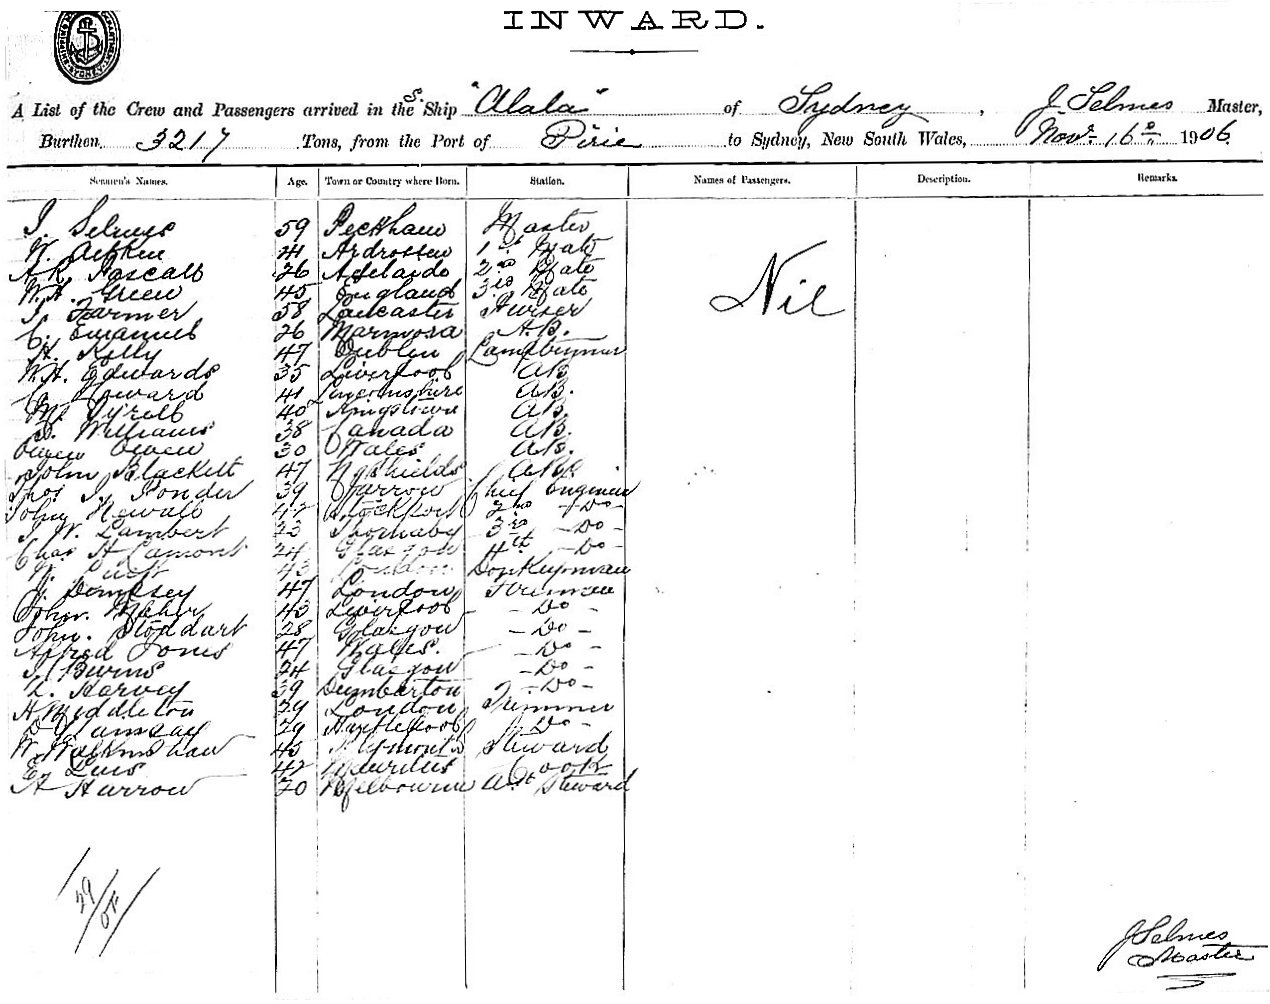 INWARD.
A List of the Crew and Passengers arrived in the S. Ship "Alala" of Sydney, J Selmes Master,
Burthen 3217 Tons, from the Port of Pirie to Sydney, New South Wales, Novr 16th 1906
Seamen's Names. Age. Town or Country where Born. Station. Names of Passengers. Description. Remarks.
J. Selmes 59 Peckham Master
W. Aitken 41 Ardrossan 1st Mate
A.R. Pascall 26 Adelaide 2nd Mate
W.H. Green 45 England 3rd Mate
Nil
J. Farmer 58 Lancaster
C. Emanuel 26 Marmora A.B.
H. Kelly 47 Dublin Lamptrimmer
W.H. Edwards 35 Liverpool AB
Howard 41 Lincolnshire AB.
M. Tyrell 40 Kingstown AB.
D. Williams 38 Canada AB.
Owen Owen 30 Wales AB.
John Blackett 47 N. Shields AB.
Thos J. Ponder 39 Jarrow Chief Engineer
John Newall 42 Stockport 2nd -Do-
J. W. Lambert 23 Thornaby 3rd -Do-
Chas H Lamont 24 Glasgow 4th -Do-
43 London Donkeyman
J. Dempsey 47 London Fireman
John Maher 43 Liverpool -Do-
John. Stoddart 28 Glasgow -Do-
Alfred Jones 47 Wales. -Do-
J. Burns 24 Glasgow -Do-
L. Harvey 39 Dumbarton -Do-
H Middleton 29 London Trimmer
D Ramsay 29 Hartlepool -Do-
W. Walkinshaw 45 Plymouth Steward
E. Luis 42 Mauritius Cook
A Harrow 20 Melbourne Asst Steward
29
J Selmes
Master